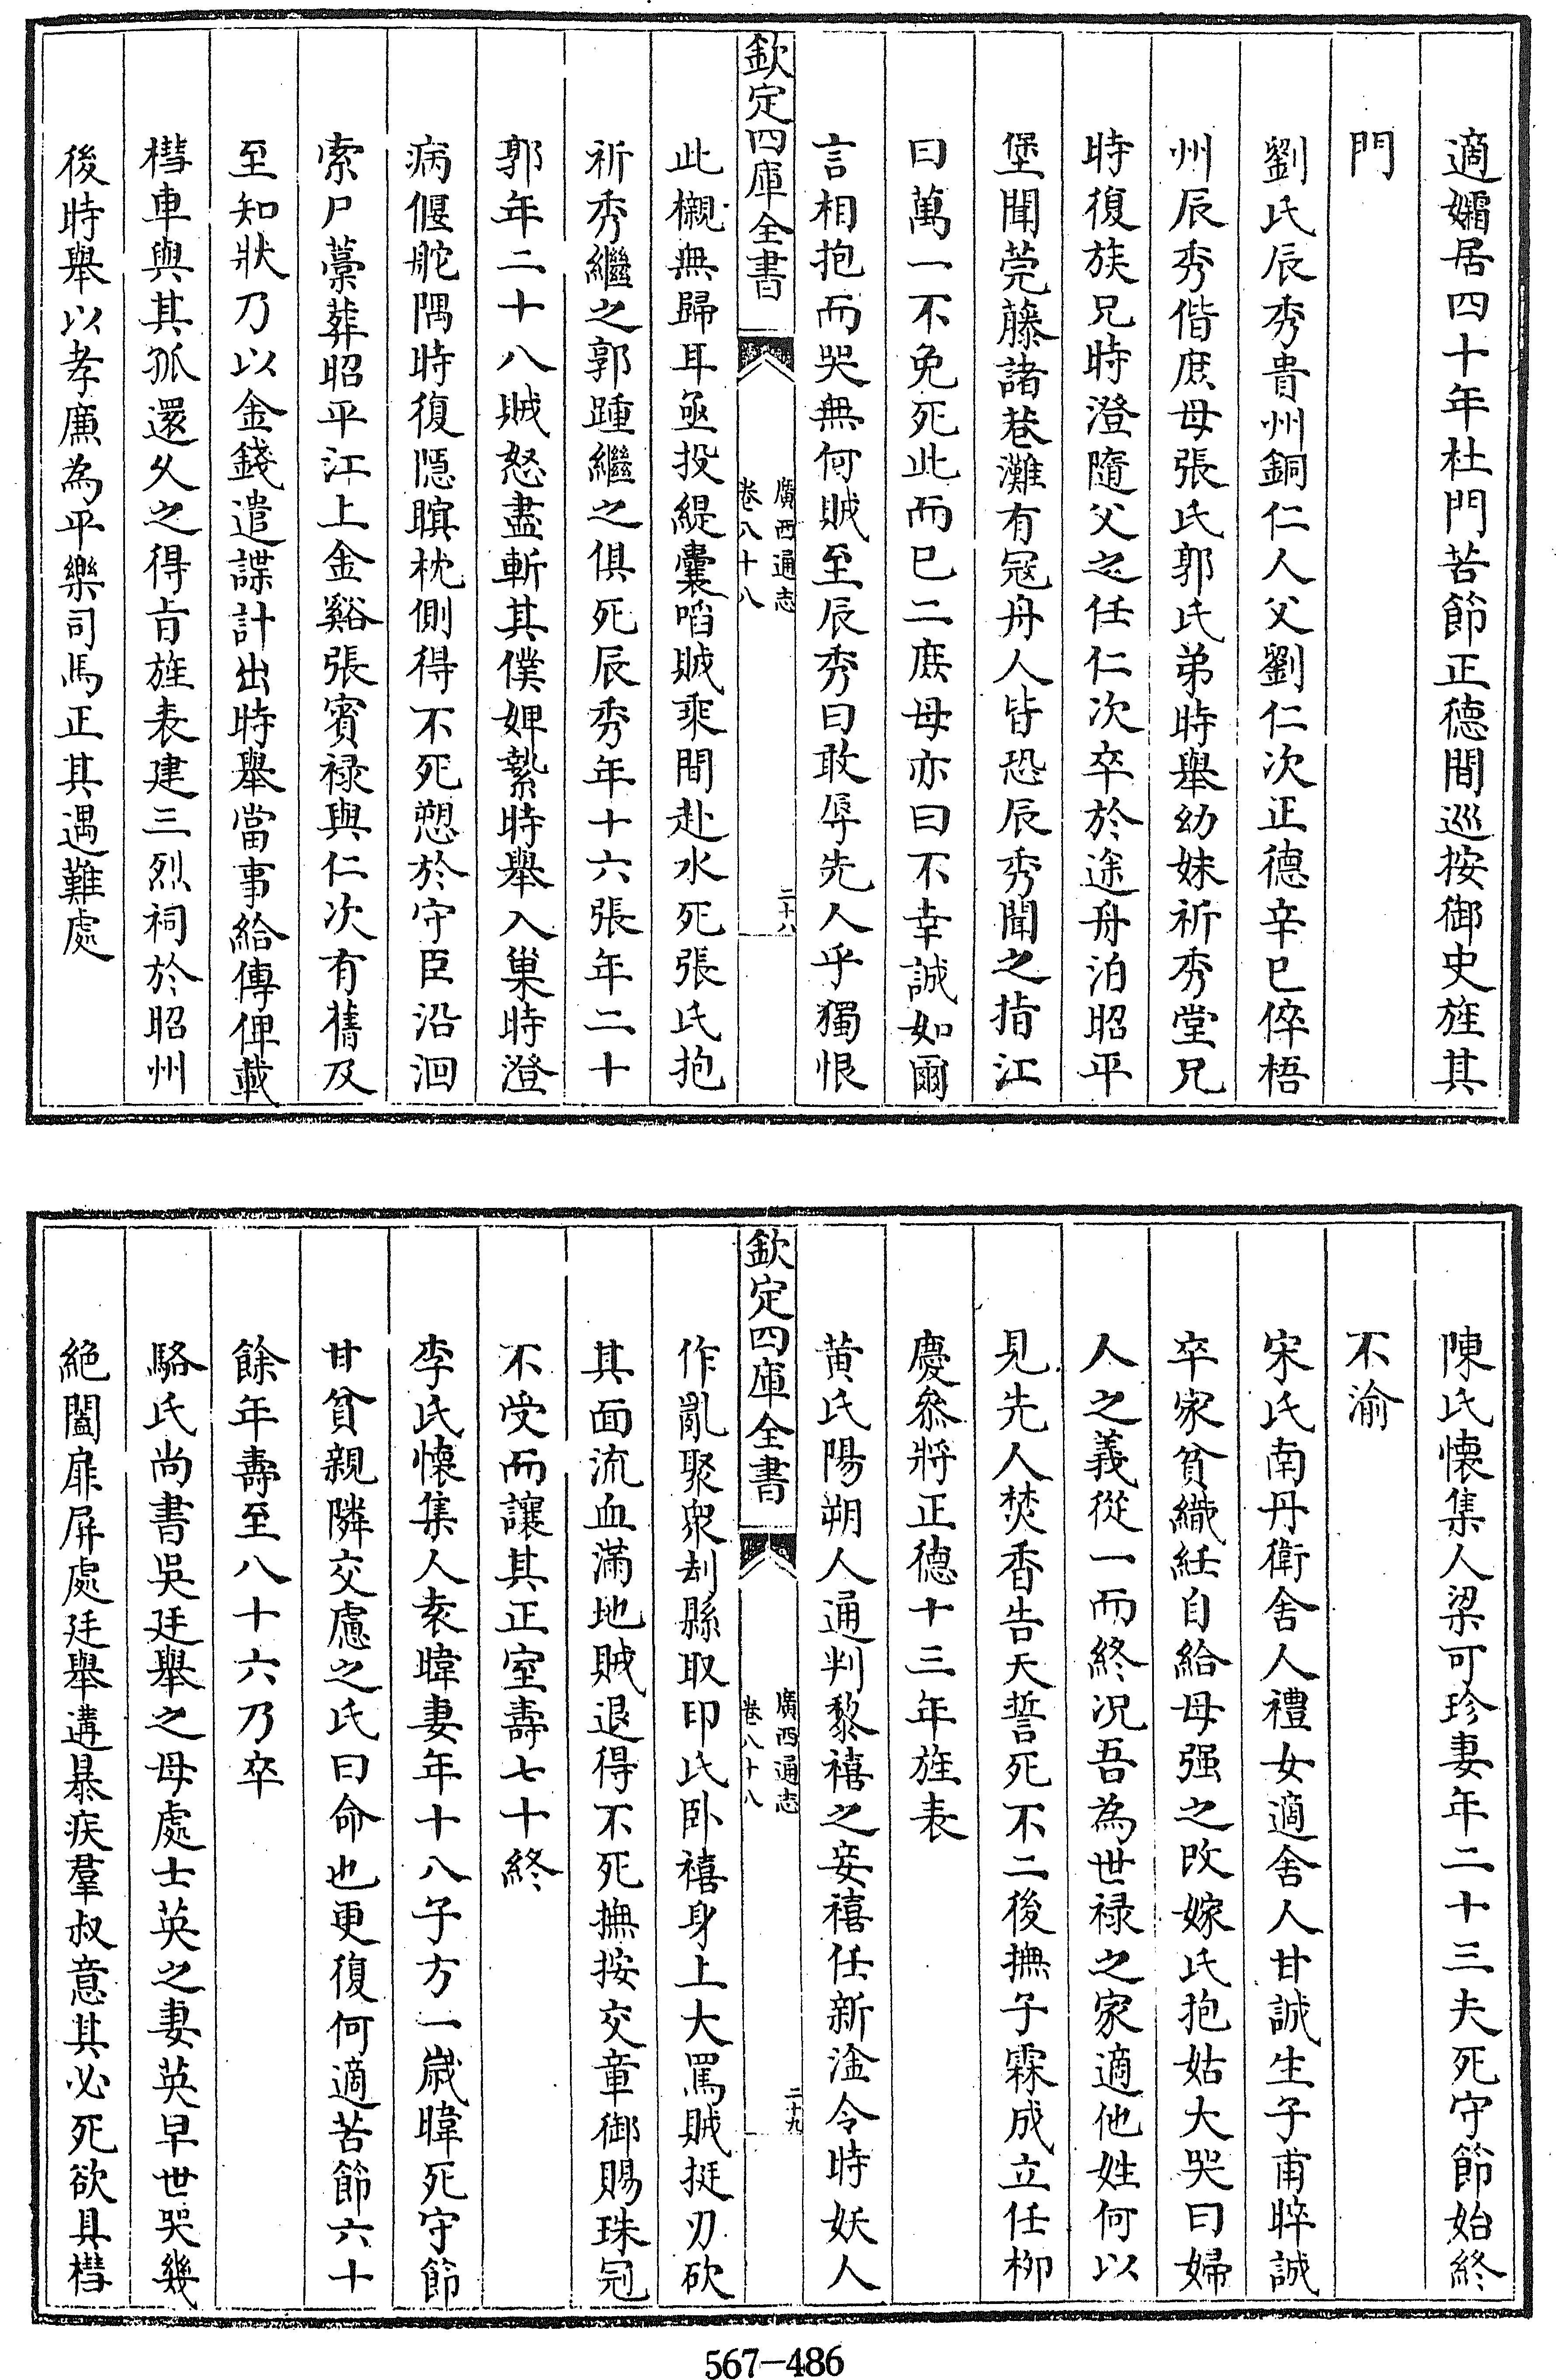 適孀居四十年杜門苦節正德間巡按御史旌其
門
劉氏辰秀貴州銅仁人父劉仁次正德辛巳倅梧
州辰秀偕庶母張氏郭氏弟時舉幼妹祈秀堂兄
時復族兄時澄隨父之任仁次卒於途舟泊昭平
堡聞莞藤諸巷灘有冦舟人皆恐辰秀聞之指江
曰萬一不免死此而已二庶母亦曰不幸誠如爾
言相抱而哭無何賊至辰秀曰敢辱先人乎獨恨
欽定四庫全書
廣西通志
卷八十八
二十八
此櫬無歸耳亟投緹囊啗賊乘間赴水死張氏抱
祈秀繼之郭踵繼之俱死辰秀年十六張年二十
郭年二十八賊怒盡斬其僕婢縶時舉入巢時澄
病偃舵隅時復隱暝枕側得不死愬於守臣沿洄
索尸藁葬昭平江上金谿張賓祿與仁次有舊及
至知狀乃以金錢遣諜計出時舉當事給傳俾載
槥車與其孤還久之得旨旌表建三烈祠於昭州
後時舉以孝廉為平樂司馬正其遇難處
陳氏懷集人梁可珍妻年二十三夫死守節始終
不渝
宋氏南丹衛舍人禮女適舍人甘誠生子甫晬誠
卒家貧織紝自給母强之改嫁氏抱姑大哭曰婦
人之義從一而終况吾為世祿之家適他姓何以
見先人焚香告天誓死不二後撫子霖成立任柳
慶叅將正德十三年旌表
黄氏陽朔人通判黎禧之妾禧任新淦令時妖人
欽定四庫全書
廣西通志
卷八十八
二十九
作亂聚衆刦縣取印氏卧禧身上大罵賊挺刃砍
其面流血滿地賊退得不死撫按交章御賜珠冠
不受而讓其正室壽七十終
李氏懷集人袁暐妻年十八子方一嵗暐死守節
甘貧親隣交慮之氏曰命也更復何適苦節六十
餘年壽至八十六乃卒
駱氏尚書吳廷舉之母處士英之妻英早世哭幾
絶闔扉屏處廷舉遘暴疾羣叔意其必死欲具槥
567-486